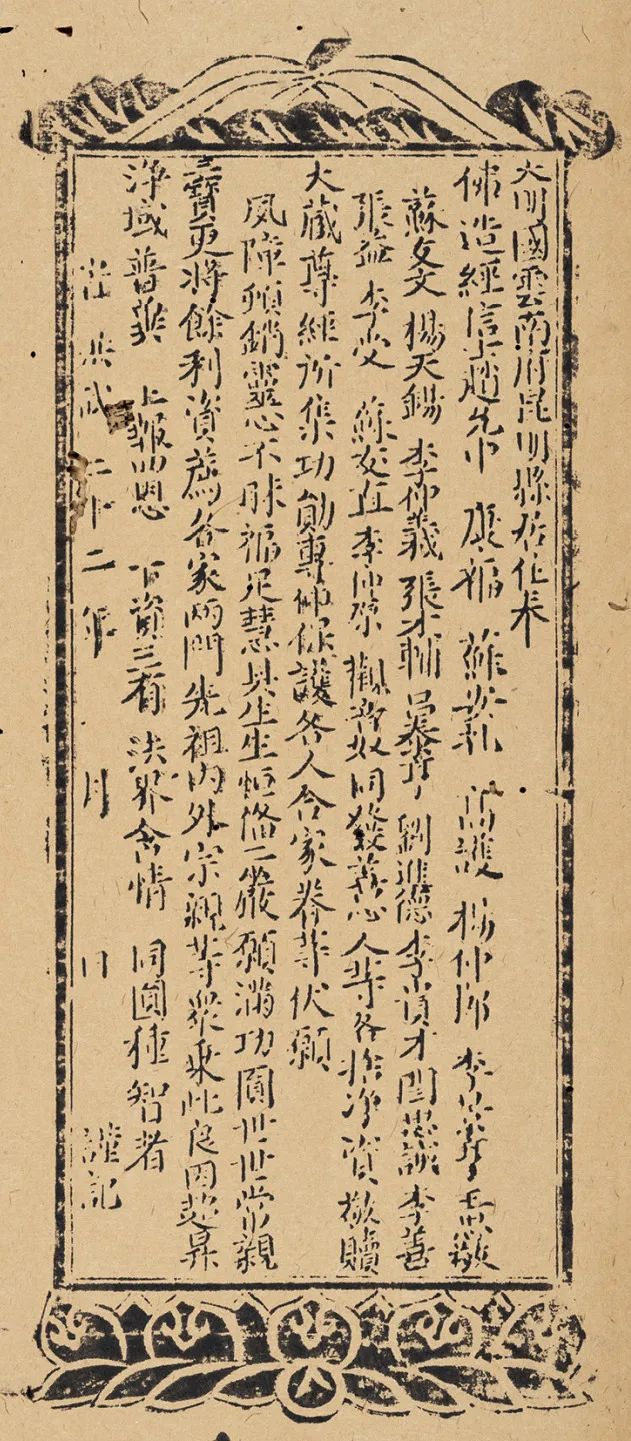 大明國雲南府昆明縣居住奉
佛造經信士趙 中 康福 蘇 禮 高護 楊仲郎 李 壽
蘇文 楊天錫 李仲義 張才輔 呂 壽 劉進德 李資才 閆思誠 李善
張益 李受 蘇文直 李仲榮 觀音奴 同發善心人等各捨淨資敬贖
大藏尊經所集功勛專伸保護各人合家眷等伏願
夙障頓銷靈心不昧福足慧具生生恒脩二嚴願滿功圓世世常親
三寶更將餘利資薦各家兩門先祖內外宗親等眾乘此良因超昇
淨域普冀 上報四恩 下資三有 法界含情 同圓種智者
洪武二十二年 月 日 謹記